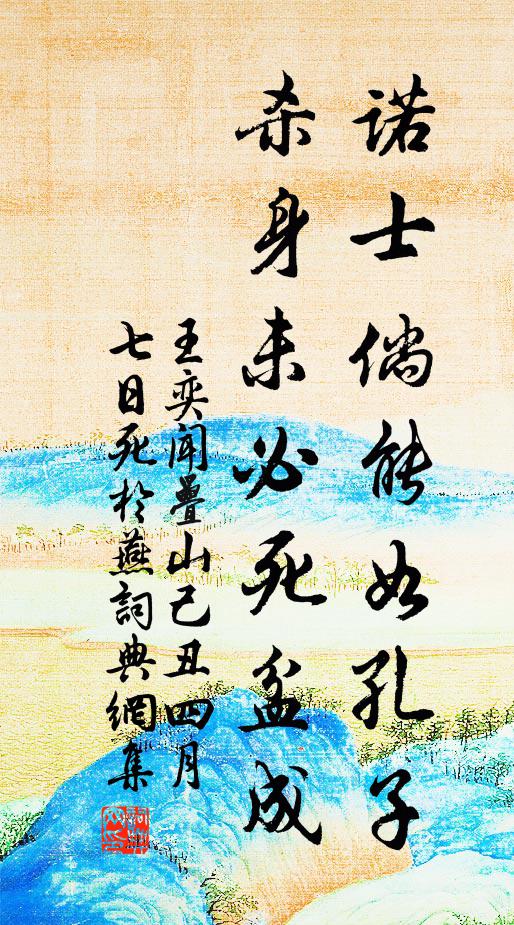 諾士倘能如孔子
杀身未必死盆成
王奕聞疊山己丑四月
七日死於燕詞典網集